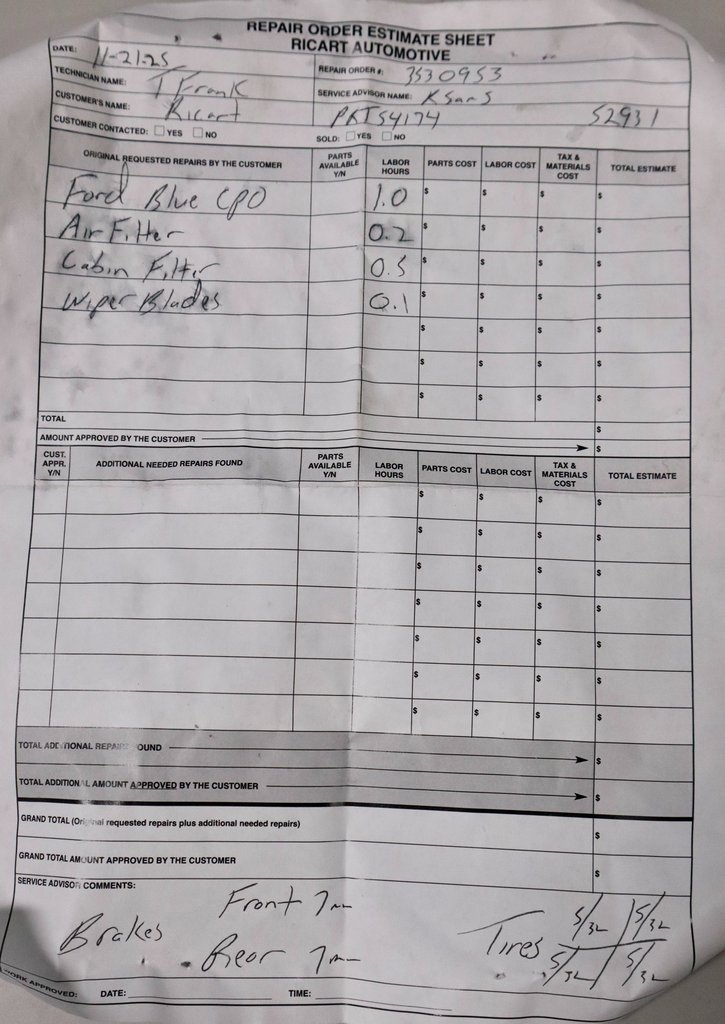 REPAIR ORDER ESTIMATE SHEET
RICART AUTOMOTIVE
DATE: 11-21-25
REPAIR ORDER #: 3530953
TECHNICIAN NAME: T Frank
SERVICE ADVISOR NAME: KSars
CUSTOMER'S NAME: Ricart
PRTS4174 52931
CUSTOMER CONTACTED: ☐ YES ☐ NO
SOLD: ☐ YES ☐ NO
ORIGINAL REQUESTED REPAIRS BY THE CUSTOMER PARTS AVAILABLE Y/N LABOR HOURS PARTS COST LABOR COST TAX & MATERIALS COST TOTAL ESTIMATE
Ford Blue CPO 1.0 $ $ $ $
Air Filter 0.2 $ $ $ $
Cabin Filter 0.5 $ $ $ $
Wiper Blades 0.1 $ $ $ $
$ $ $ $
$ $ $ $
$ $ $ $
TOTAL $
AMOUNT APPROVED BY THE CUSTOMER $
CUST. APPR. Y/N ADDITIONAL NEEDED REPAIRS FOUND PARTS AVAILABLE Y/N LABOR HOURS PARTS COST LABOR COST TAX & MATERIALS COST TOTAL ESTIMATE
$ $ $ $
$ $ $ $
$ $ $ $
$ $ $ $
$ $ $ $
$ $ $ $
$ $ $ $
TOTAL ADDITIONAL REPAIRS FOUND $
TOTAL ADDITIONAL AMOUNT APPROVED BY THE CUSTOMER $
GRAND TOTAL (Original requested repairs plus additional needed repairs) $
GRAND TOTAL AMOUNT APPROVED BY THE CUSTOMER $
SERVICE ADVISOR COMMENTS:
Brakes Front 7mm
Rear 7mm
Tires 5/32 5/32
5/32 5/32
WORK APPROVED: DATE: TIME: